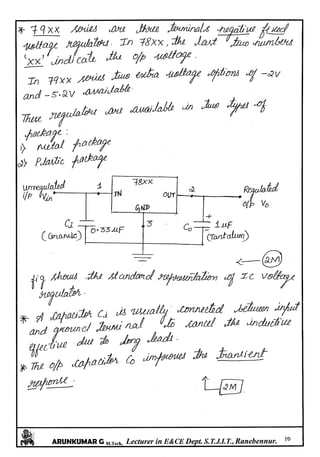 * 79xx series are three terminals negative fixed
voltage regulators. In 78xx, the last two numbers
'xx' indicate the o/p voltage.
In 79xx series two extra voltage options of -2v
and -5.2v available.
These regulators are available in two types of
package :
1) metal package
2) Plastic package
unregulated
i/p Vin
1
78xx
IN
OUT
GND
2
Regulated
o/p Vo
Ci
(Ceramic)
0.33µF
3
Co
+
1µF
(Tantalum)
2M
fig shows the standard representation of IC voltage
regulator.
* A capacitor Ci is usually connected between input
and ground terminal to cancel the inductive
effective due to long leads.
* The o/p capacitor Co improves the transient
response.
2M
ARUNKUMAR G M.Tech, Lecturer in E&CE Dept. S.T.J.I.T., Ranebennur. 10